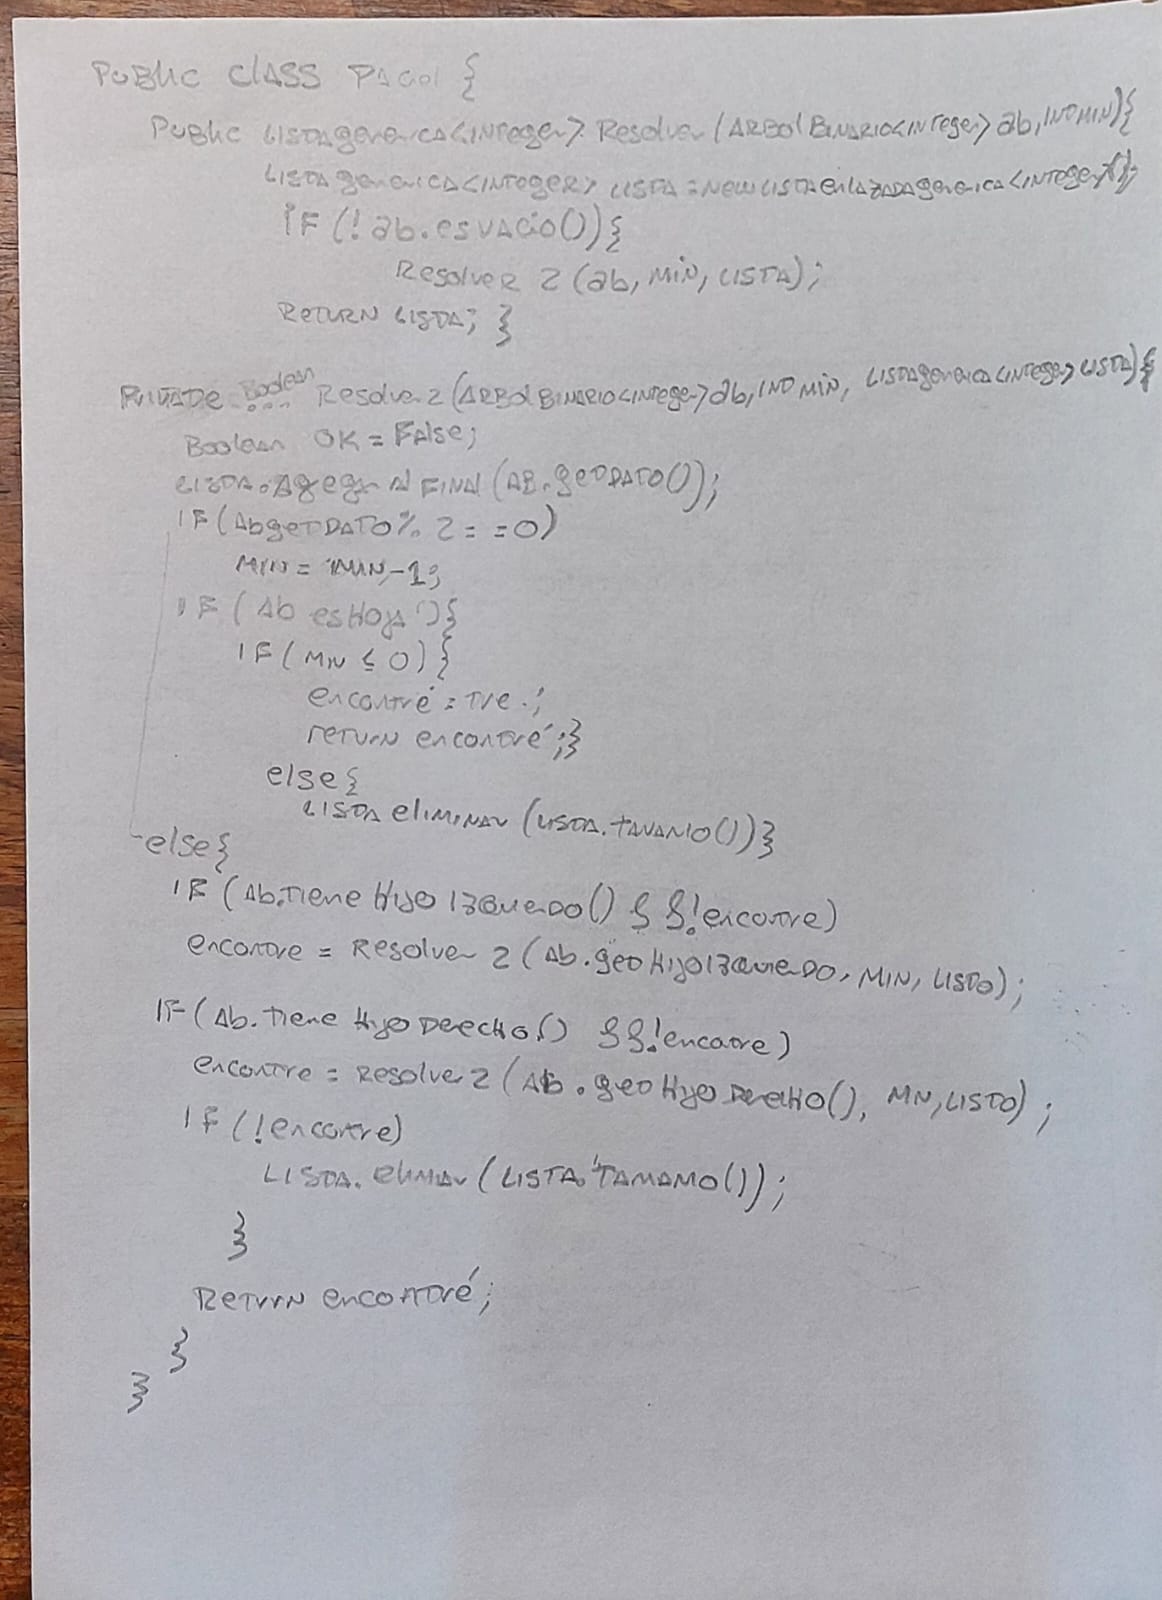 PUBLIC CLASS PARCIAL {
PUBLIC LISTAgenerica<INTeger> Resolver (ARBOlBINARIO<INTeger> ab, INT MIN) {
LISTA generica<INTEGER> LISTA = NEW LISTAenlAZADAgenerica<INTeger>();
IF (! ab.esVACIO()){
Resolver 2 (ab, MIN, LISTA);
RETURN LISTA; }
PRIVATE Boolean Resolver 2 (ARBOl BINARIO<INTeger> ab, INT MIN, LISTAgenerica<INTeger> LISTA) {
Boolean OK = FAlse;
LISTA.Agregar Al FINAl (AB.geTDATO());
IF (Ab geTDATO % 2 = = 0)
MIN = MIN-1;
IF ( Ab esHOJA (){
IF ( MIN ≤ 0 ) {
encontré = Tre ;
reTurn encontré ;}
else {
LISTA eliMINAr (LISTA.TAMANIO())}
else {
IF (Ab.Tiene HIJO IZQUIerDO() &&!encontre)
encontre = Resolver 2 (Ab.geT HIJOIZQUIerDO, MIN, LISTO);
IF ( Ab. Tiene HIJO DerecHo.() &&!encotre)
encontre = Resolver 2 ( Ab. geT HIJO DerecHO(), MN, LISTO) ;
IF (! encontre)
LISTA. elIMINAr ( LISTA.TAMAMO());
}
ReTurN encontré;
}
}